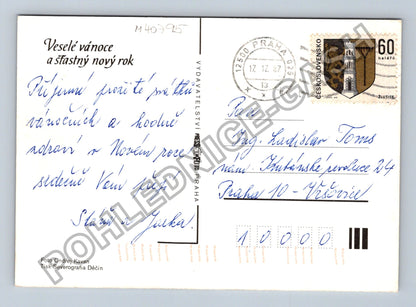 M 40795
Veselé vánoce
a šťastný nový rok
Příjemné prožití svátků
vánočních a hodně
zdraví v Novém roce
srdečně Vám přejí
Foto Ondřej Kavan
Tisk Severografia Děčín
VYDAVATELSTVÍ
PRAHA
12500 PRAHA 025
12.12.87
ČESKOSLOVENSKO
60
haléřů
Pan
Ing. Ladislav Toms
nám. Kubánské revoluce 24
Praha 10 - Vršovice
10000
POHLEDNICE-CASH